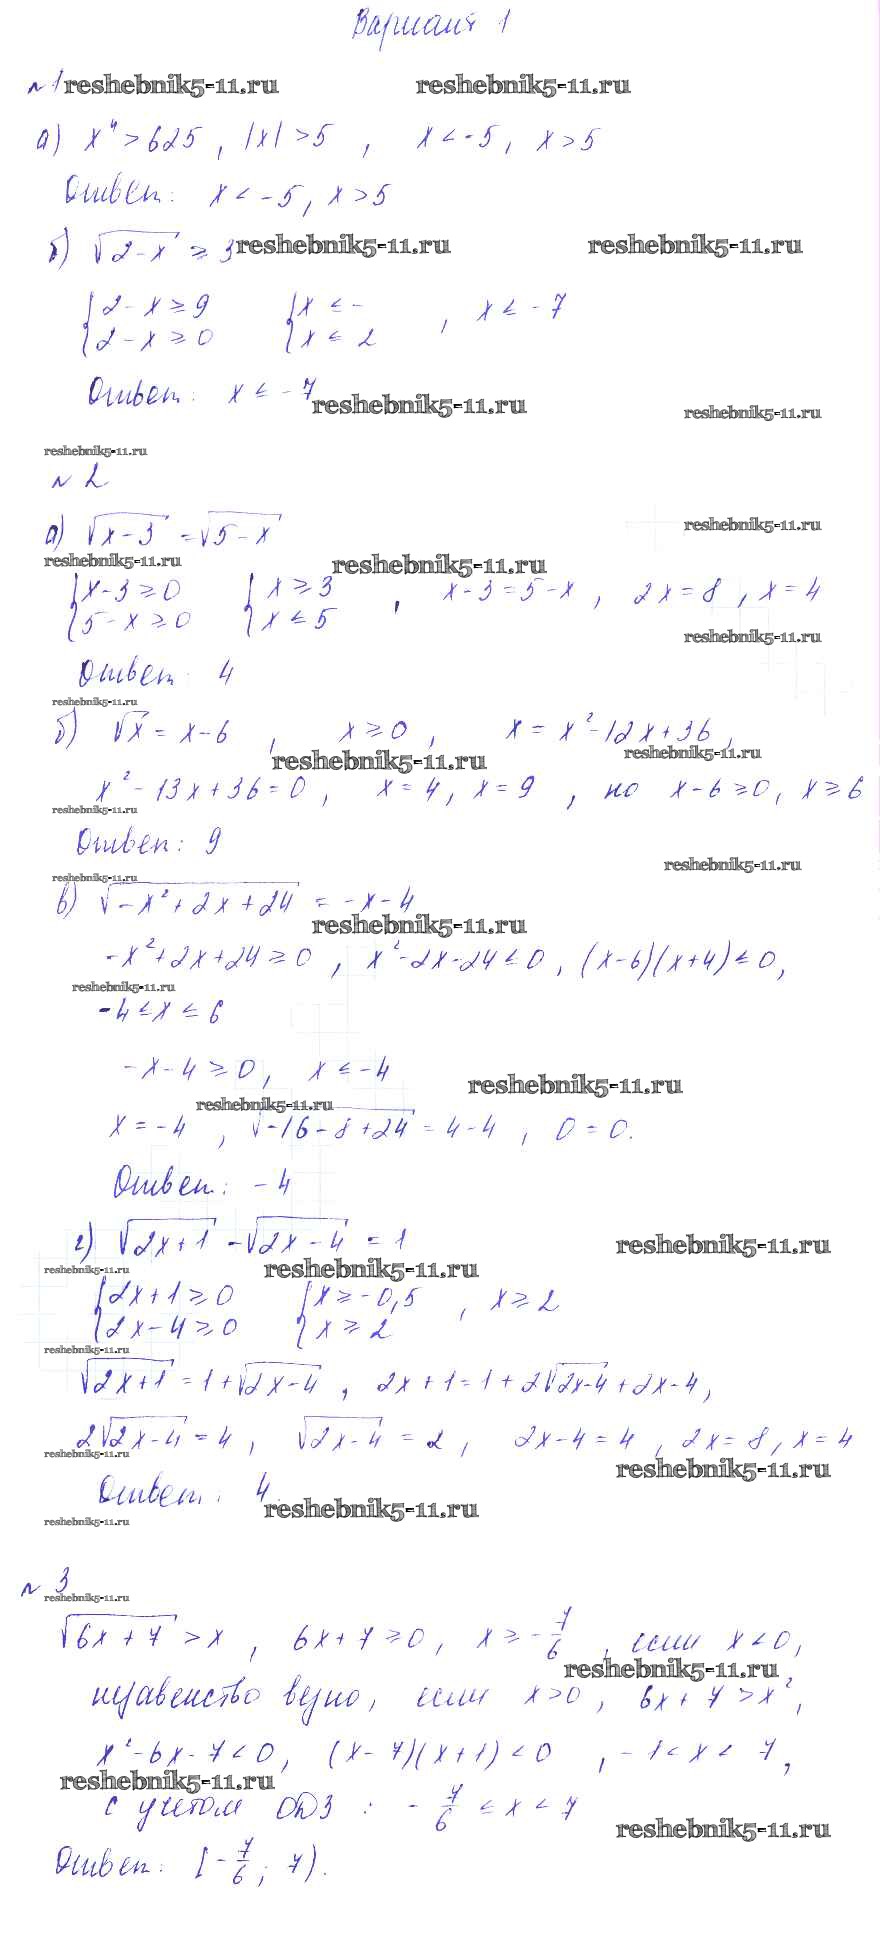 Вариант 1
№1 reshebnik5-11.ru reshebnik5-11.ru
а) x⁴ > 625, |x| > 5, x < -5, x > 5
Ответ: x < -5, x > 5
б) √(2-x) ≥ 3 reshebnik5-11.ru reshebnik5-11.ru
{2-x ≥ 9 {x ≤ -
{2-x ≥ 0 {x ≤ 2 , x ≤ -7
Ответ: x ≤ -7 reshebnik5-11.ru reshebnik5-11.ru
reshebnik5-11.ru
№ 2
а) √(x-3) = √(5-x) reshebnik5-11.ru
reshebnik5-11.ru reshebnik5-11.ru
{x-3 ≥ 0 {x ≥ 3
{5-x ≥ 0 {x ≤ 5 , x-3 = 5-x, 2x = 8, x = 4
reshebnik5-11.ru
Ответ: 4
reshebnik5-11.ru
б) √x = x-6, x ≥ 0, x = x²-12x+36,
reshebnik5-11.ru reshebnik5-11.ru
x²-13x+36=0, x=4, x=9, но x-6 ≥ 0, x ≥ 6
reshebnik5-11.ru
Ответ: 9
reshebnik5-11.ru reshebnik5-11.ru
в) √(-x²+2x+24) = -x-4
reshebnik5-11.ru
-x²+2x+24 ≥ 0, x²-2x-24 ≤ 0, (x-6)(x+4) ≤ 0,
reshebnik5-11.ru
-4 ≤ x ≤ 6
-x-4 ≥ 0, x ≤ -4
reshebnik5-11.ru reshebnik5-11.ru
x = -4, √(-16-8+24) = 4-4, 0 = 0.
Ответ: -4
г) √(2x+1) - √(2x-4) = 1 reshebnik5-11.ru
reshebnik5-11.ru reshebnik5-11.ru
{2x+1 ≥ 0 {x ≥ -0,5
{2x-4 ≥ 0 {x ≥ 2 , x ≥ 2
reshebnik5-11.ru
√(2x+1) = 1+√(2x-4), 2x+1 = 1+2√(2x-4)+2x-4,
2√(2x-4) = 4, √(2x-4) = 2, 2x-4 = 4, 2x = 8, x = 4
reshebnik5-11.ru reshebnik5-11.ru
Ответ: 4. reshebnik5-11.ru
reshebnik5-11.ru
№ 3
reshebnik5-11.ru
√(6x+7) > x, 6x+7 ≥ 0, x ≥ -7/6, если x < 0,
reshebnik5-11.ru
неравенство верно, если x > 0, 6x+7 > x²,
x²-6x-7 < 0, (x-7)(x+1) < 0, -1 < x < 7,
reshebnik5-11.ru
с учетом ОДЗ: -7/6 ≤ x < 7
reshebnik5-11.ru
Ответ: [-7/6; 7).